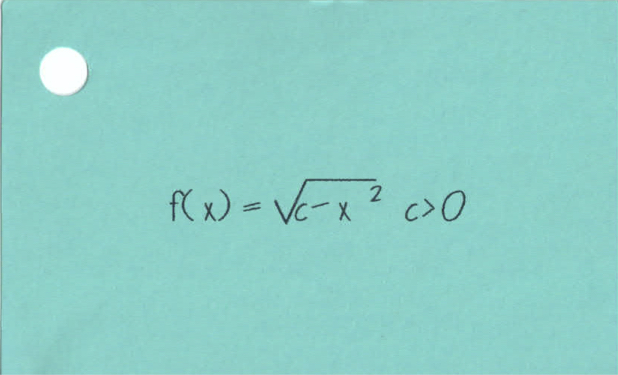 f(x) = √(c-x²) c>0